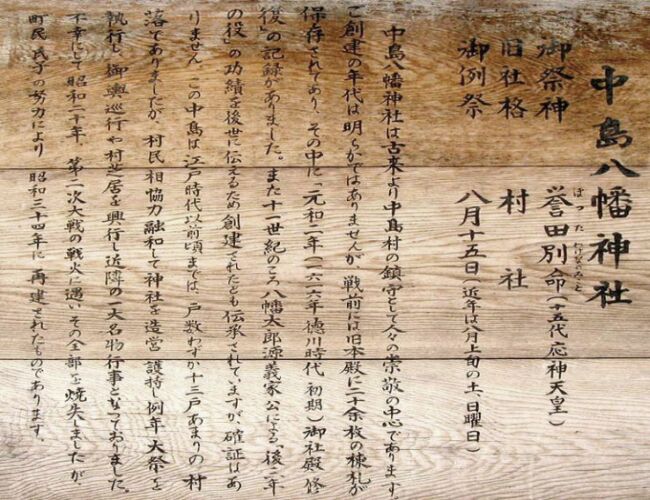 中島八幡神社
御祭神　誉田別命（十五代応神天皇）
旧社格　村社
御例祭　八月十五日（近年は八月上旬の土、日曜日）
中島八幡神社は古来より中島村の鎮守として人々の崇敬の中心であります。
ご創建の年代は明らかではありませんが、戦前には旧本殿に二十余枚の棟札が
保存されてあり、その中に「元和二年（一六一六年徳川時代初期）御社殿修
復」の記録がありました。また十一世紀のころ八幡太郎源義家公による「後三年
の役」の功績を後世に伝えるため創建されたとも伝承されていますが、確証はあ
りません。この中島は江戸時代以前頃までは、戸数わずか十三戸あまりの村
落でありましたが、村民相協力融和して神社を造営護持し例年大祭を
執行し、御輿巡行や村芝居を興行し近隣の一大名物行事となっておりました。
不幸にして昭和二十年、第二次大戦の戦火に遇いその全部を焼失しましたが
町民氏子の努力により昭和三十四年に再建されたものであります。